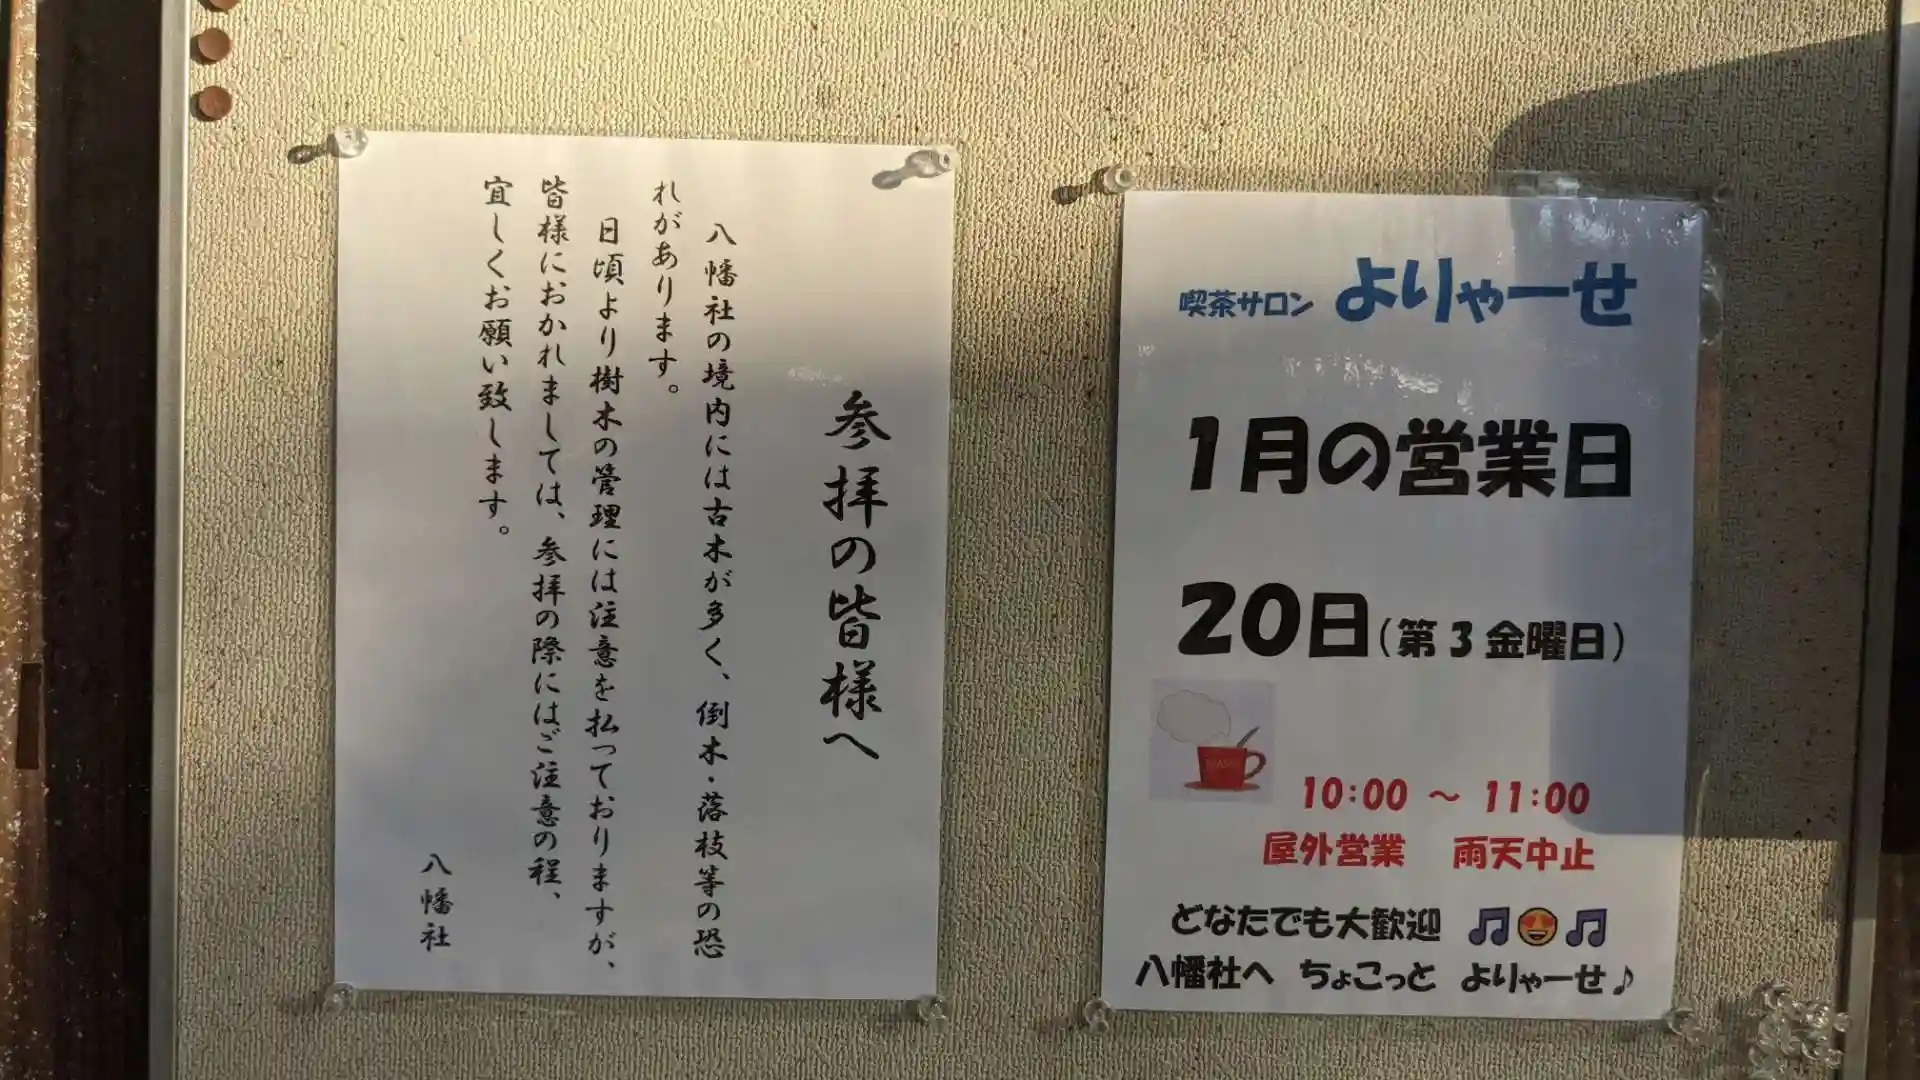 参拝の皆様へ
八幡社の境内には古木が多く、倒木・落枝等の恐
れがあります。
日頃より樹木の管理には注意を払っておりますが、
皆様におかれましては、参拝の際にはご注意の程、
宜しくお願い致します。
八幡社
喫茶サロン よりゃーせ
1月の営業日
20日(第3金曜日)
10:00 ～ 11:00
屋外営業 雨天中止
どなたでも大歓迎 🎵😍🎵
八幡社へ ちょこっと よりゃーせ♪